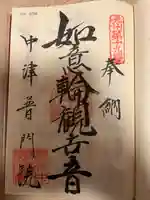 奉納
如意輪觀世音
中津普門院